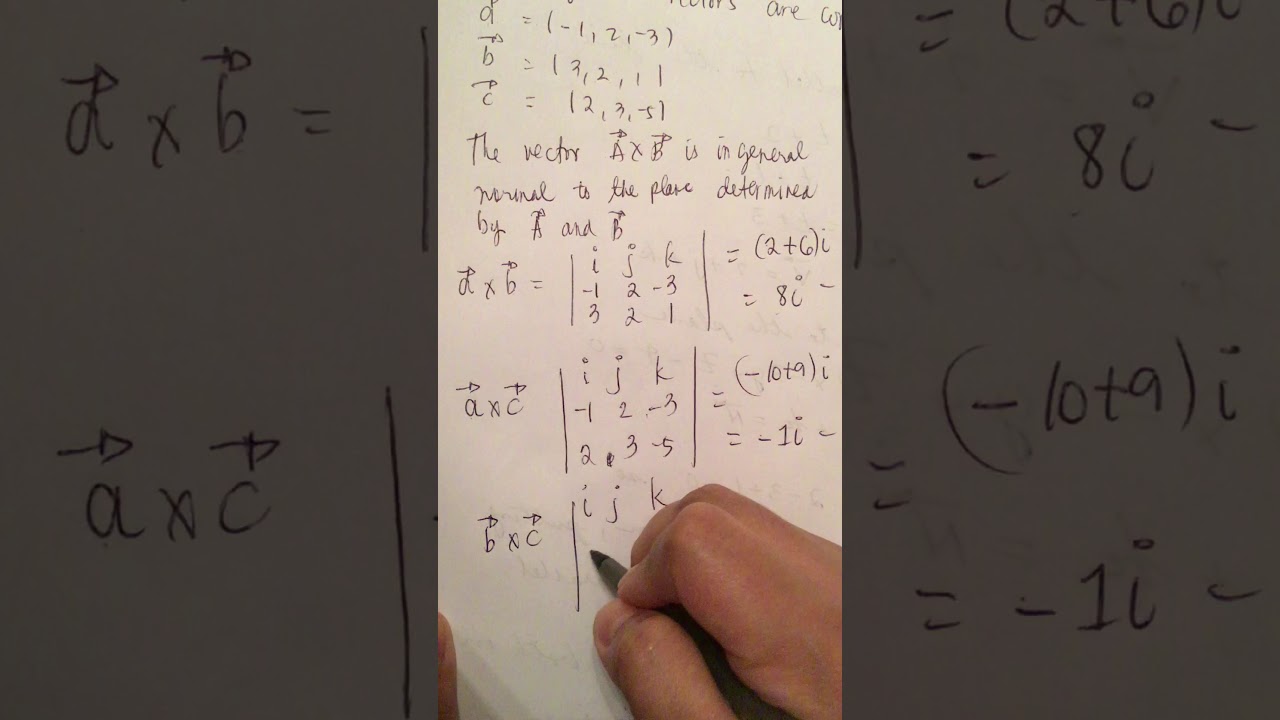 vectors are
a = (-1, 2, -3)
b = (3, 2, 1)
c = (2, 3, -5)
The vector A × B is in general
normal to the plane determined
by A and B
a × b = | i j k | = (2+6)i
| -1 2 -3 | = 8i -
| 3 2 1 |
a × c | i j k | = (-10+9)i
| -1 2 -3 |
| 2 3 -5 | = -1i -
b × c | i j k